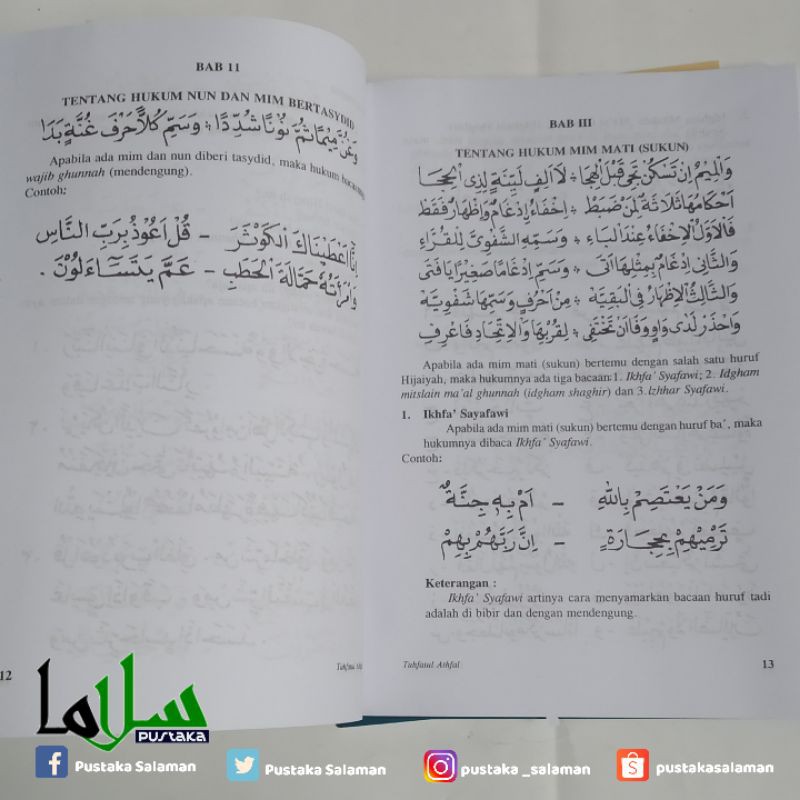 BAB 11
TENTANG HUKUM NUN DAN MIM BERTASYDID
وَغُنَّ مِيْمًا ثُمَّ نُوْنًا شُدِّدَا ؞ وَسَمِّ كُلًّا حَرْفَ غُنَّةٍ بَدَا
Apabila ada mim dan nun diberi tasydid, maka hukum
wajib ghunnah (mendengung).
Contoh:
اِنَّا اَعْطَيْنَاكَ الْكَوْثَرَ – قُلْ اَعُوْذُ بِرَبِّ النَّاسِ
وَامْرَأَتُهُ حَمَّالَةَ الْحَطَبِ – عَمَّ يَتَسَاءَلُوْنَ .
12
BAB III
TENTANG HUKUM MIM MATI (SUKUN)
وَالْمِيْمُ اِنْ تَسْكُنْ تَجِى قَبْلَ الْهِجَا ؞ لَا اَلِفٍ لَيِّنَةٍ لِذِى الْحِجَا
اَحْكَامُهَا ثَلَاثَةٌ لِمَنْ ضَبَطْ ؞ اِخْفَاءٌ اِدْغَامٌ وَاِظْهَارٌ فَقَطْ
فَالْاَوَّلُ الْاِخْفَاءُ عِنْدَ الْبَاءِ ؞ وَسَمِّهِ الشَّفْوِيَّ لِلْقُرَّاءِ
وَالثَّانِى اِدْغَامٌ بِمِثْلِهَا اَتَى ؞ وَسَمِّ اِدْغَامًا صَغِيْرًا يَا فَتَى
وَالثَّالِثُ الْاِظْهَارُ فِى الْبَقِيَّةْ ؞ مِنْ اَحْرُفٍ وَسَمِّهَا شَفْوِيَّةْ
وَاحْذَرْ لَدَى وَاوٍ وَفَا اَنْ تَخْتَفِى ؞ لِقُرْبِهَا وَالْاِتِّحَادِ فَاعْرِفِ
Apabila ada mim mati (sukun) bertemu dengan salah satu huruf
Hijaiyah, maka hukumnya ada tiga bacaan:1. Ikhfa' Syafawi; 2. Idgham
mitslain ma'al ghunnah (idgham shaghir) dan 3. Izhhar Syafawi.
1. Ikhfa' Sayafawi
Apabila ada mim mati (sukun) bertemu dengan huruf ba', maka
hukumnya dibaca Ikhfa' Syafawi.
Contoh:
وَمَنْ يَعْتَصِمْ بِاللهِ – اَمْ بِهِ جِنَّةٌ
تَرْمِيْهِمْ بِحِجَارَةٍ – اِنَّ رَبَّهُمْ بِهِمْ
Keterangan :
Ikhfa' Syafawi artinya cara menyamarkan bacaan huruf tadi
adalah di bibir dan dengan mendengung.
Tuhfatul Athfal
13
سلاما
PUSTAKA
Pustaka Salaman
Pustaka Salaman
pustaka _salaman
pustakasalaman